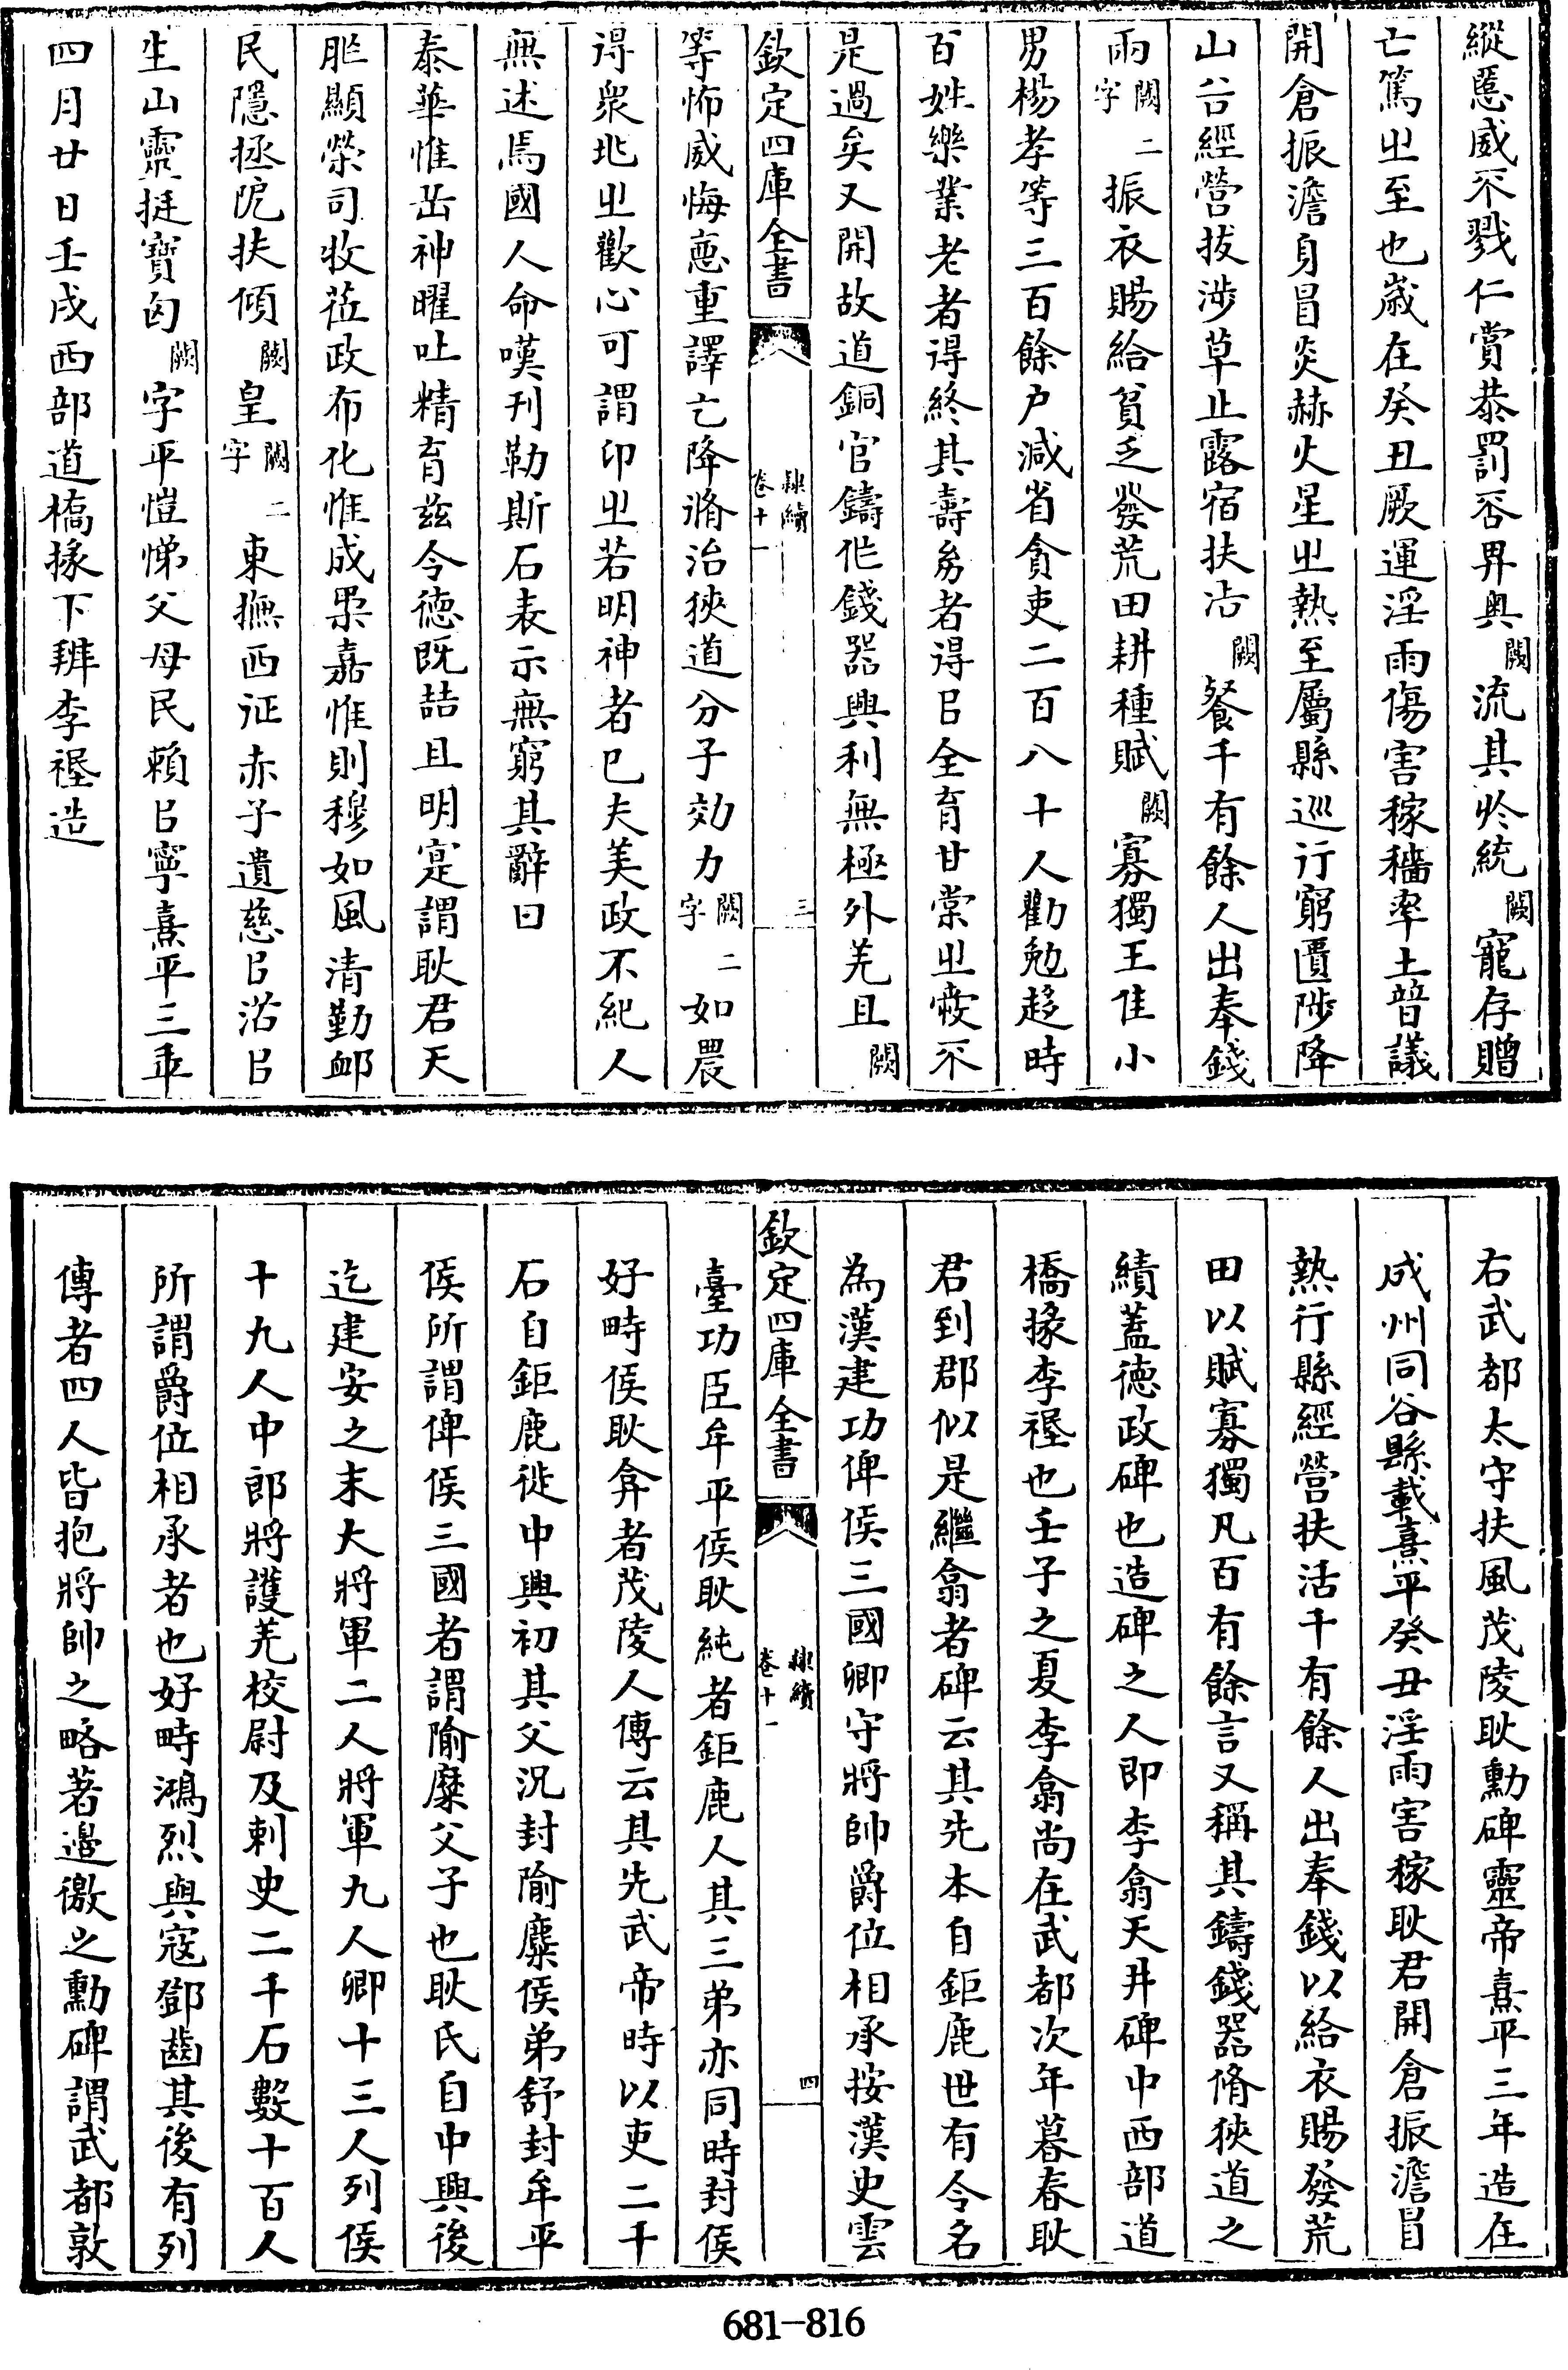 縱慝威不戮仁賞恭罰否畀奥闕流其於統闕寵存贈
亡篤㞢至也歲在癸丑厥運淫雨傷害稼穡率土普議
開倉振澹身冒炎赫火星㞢熱至屬縣巡行窮匱陟降
山谷經營拔涉草止露宿扶活闕餐千有餘人出奉錢
雨闕二字振衣賜給貧乏發荒田耕種賦闕寡獨王佳小
男楊孝等三百餘户減省貪吏二百八十人勸勉趍時
百姓樂業老者得終其壽㓜者得㠯全育甘棠㞢㤅不
是過矣又開故道銅官鑄作錢器興利無極外羌且闕
欽定四庫全書
隸續
卷十一
三
等怖威悔惡重譯乞降脩治狹道分子効力闕二字如農
得衆兆㞢歡心可謂卬㞢若明神者巳夫美政不紀人
無述焉國人命嘆刊勒斯石表示無窮其辭曰
泰華惟岳神曜吐精育兹令德既喆且明寔謂耿君天
胙顯榮司牧莅政布化惟成柔嘉惟則穆如風清勤卹
民隱拯阨扶傾闕皇闕二字東撫西征赤子遺慈㠯活㠯
生山靈挺寶匈闕字平愷悌父母民賴㠯寧熹平三年
四月廿日壬戌西部道橋掾下辨李禔造
右武都太守扶風茂陵耿勳碑靈帝熹平三年造在
成州同谷縣載熹平癸丑淫雨害稼耿君開倉振澹冒
熱行縣經營扶活千有餘人出奉錢以給衣賜發荒
田以賦寡獨凡百有餘言又稱其鑄錢器脩狹道之
績蓋德政碑也造碑之人即李翕天井碑中西部道
橋掾李禔也壬子之夏李翕尚在武都次年暮春耿
君到郡似是繼翕者碑云其先本自鉅鹿世有令名
為漢建功俾侯三國卿守將帥爵位相承按漢史雲
欽定四庫全書
隸續
卷十一
四
臺功臣牟平侯耿純者鉅鹿人其三弟亦同時封侯
好畤侯耿弇者茂陵人傳云其先武帝時以吏二千
石自鉅鹿徙中興初其父況封隃麋侯弟舒封牟平
侯所謂俾侯三國者謂隃麋父子也耿氏自中興後
迄建安之末大將軍二人將軍九人卿十三人列侯
十九人中郎將護羌校尉及刺史二千石數十百人
所謂爵位相承者也好畤鴻烈與寇鄧齒其後有列
傳者四人皆抱將帥之略著邊徼之勳碑謂武都敦
681-816